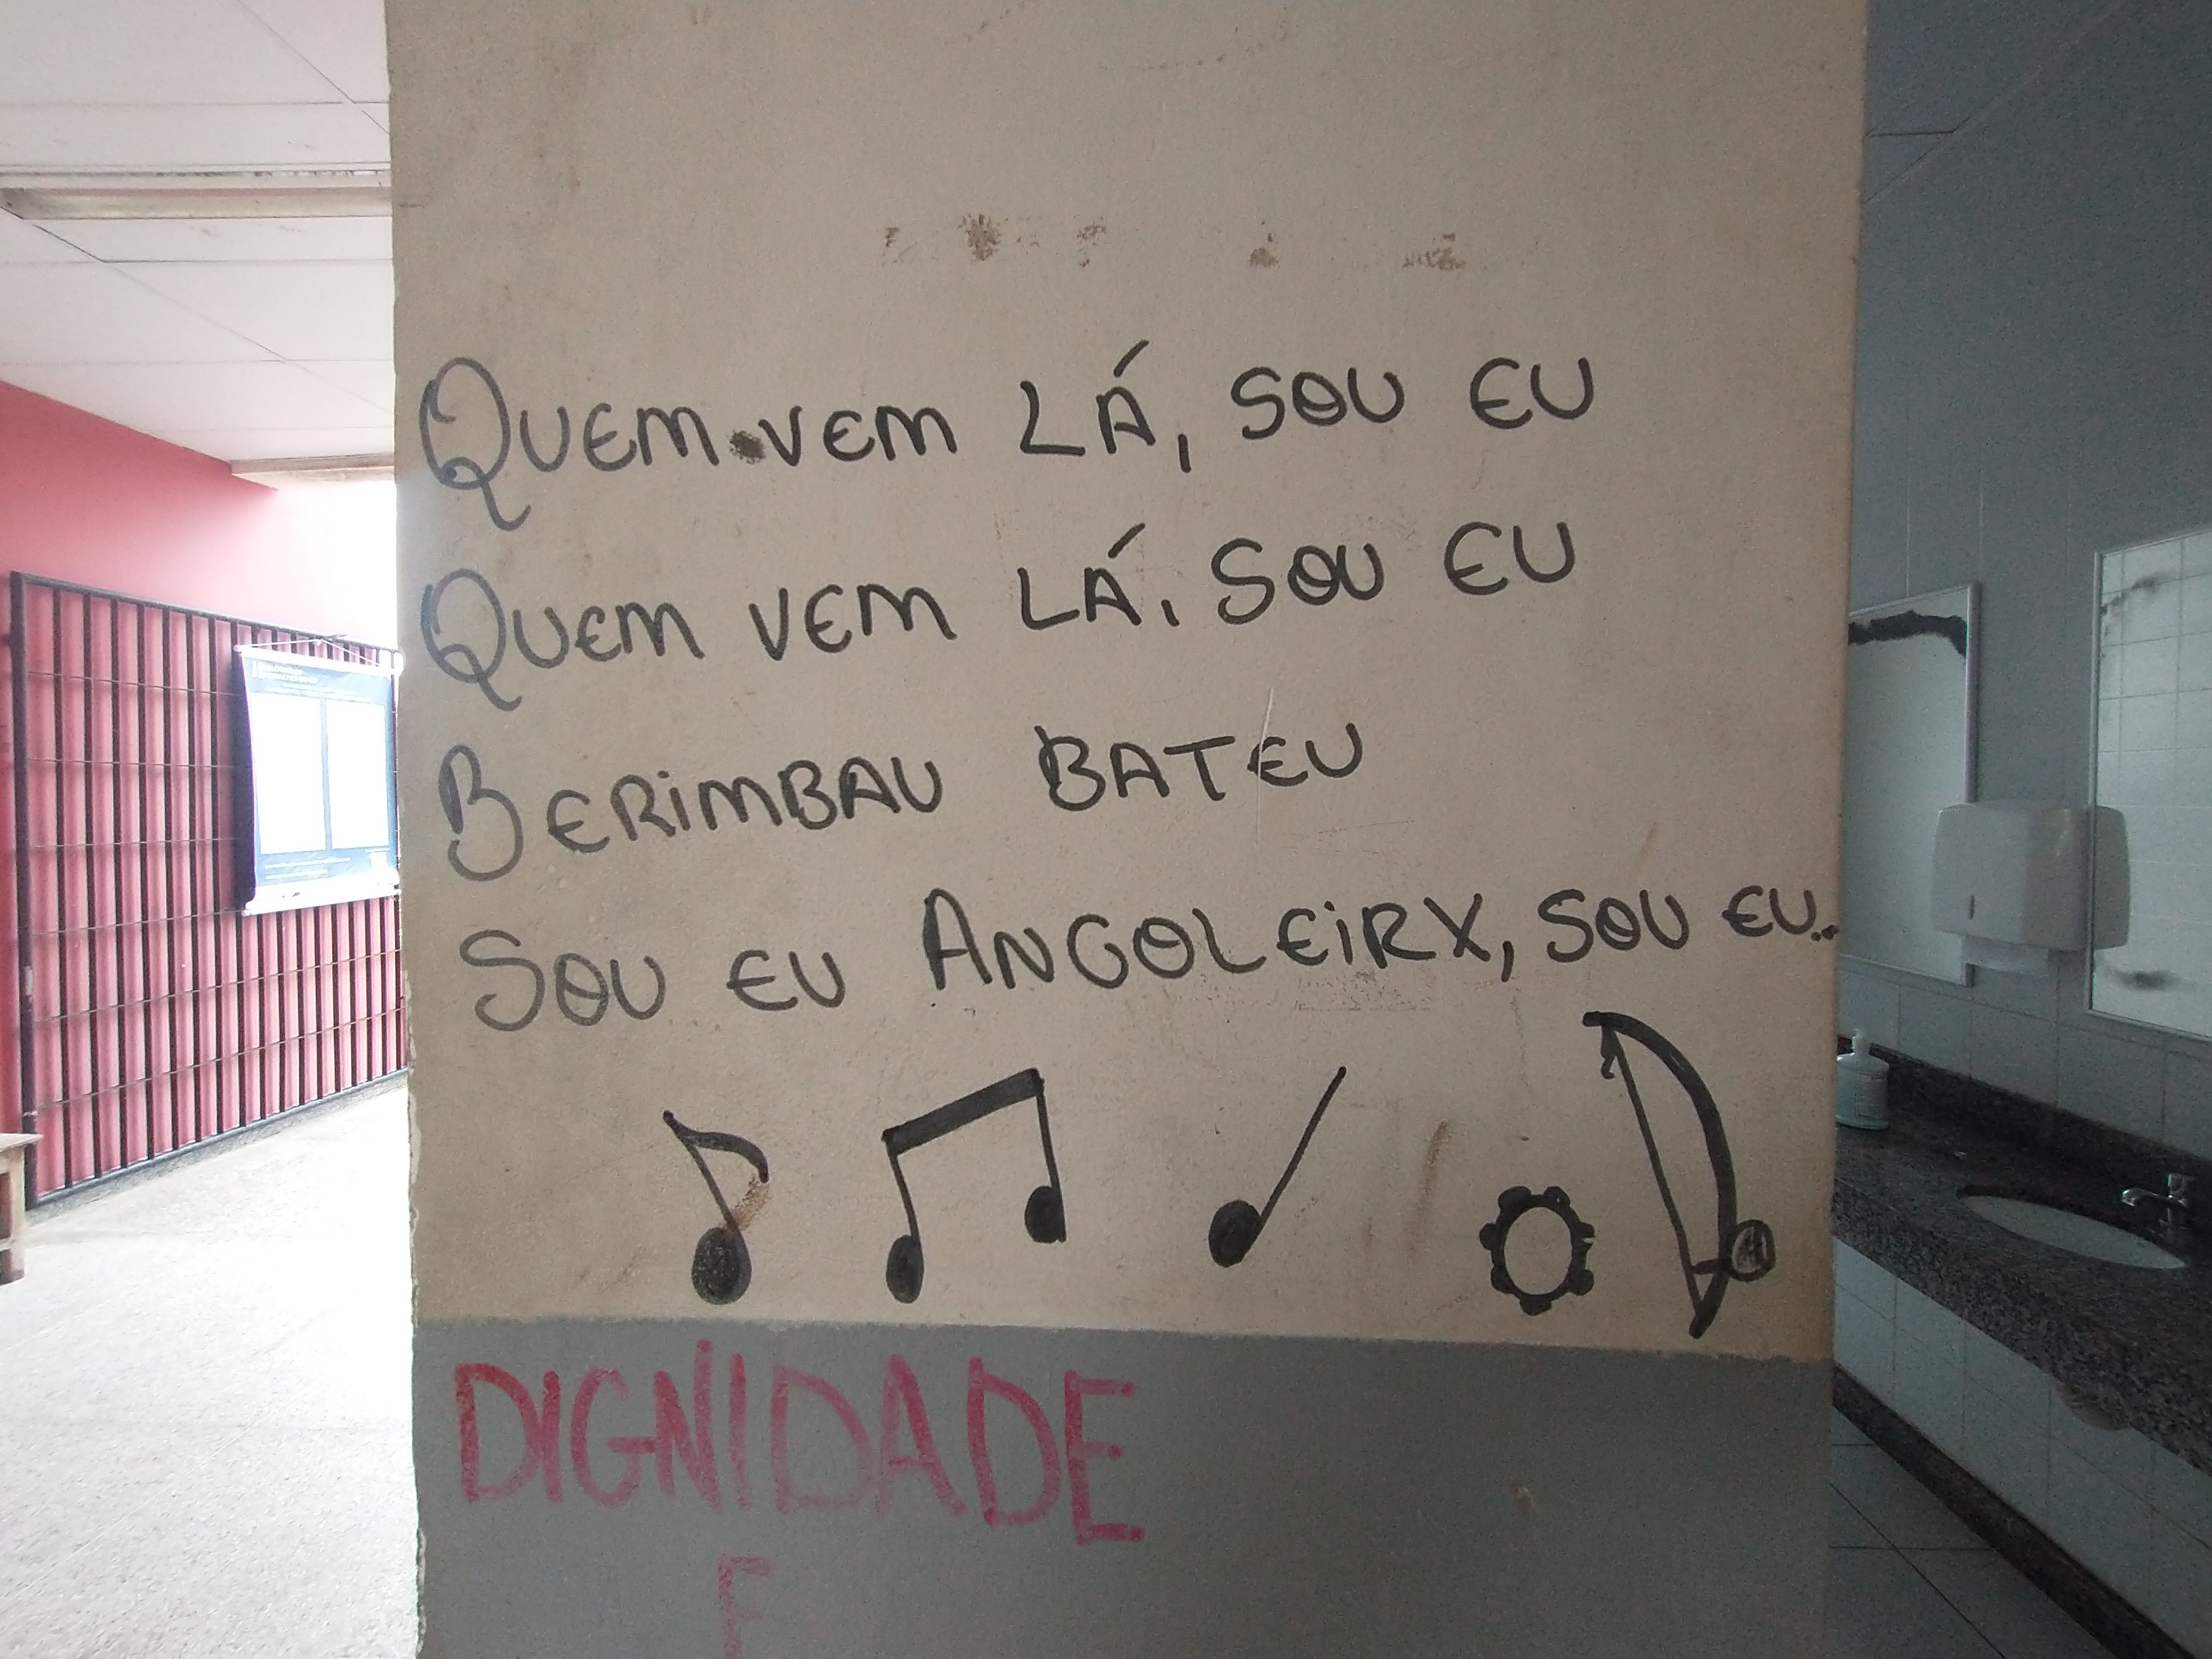 QUEM VEM LÁ, SOU EU
QUEM VEM LÁ, SOU EU
BERIMBAU BATEU
SOU EU ANGOLEIRX, SOU EU..
DIGNIDADE
E